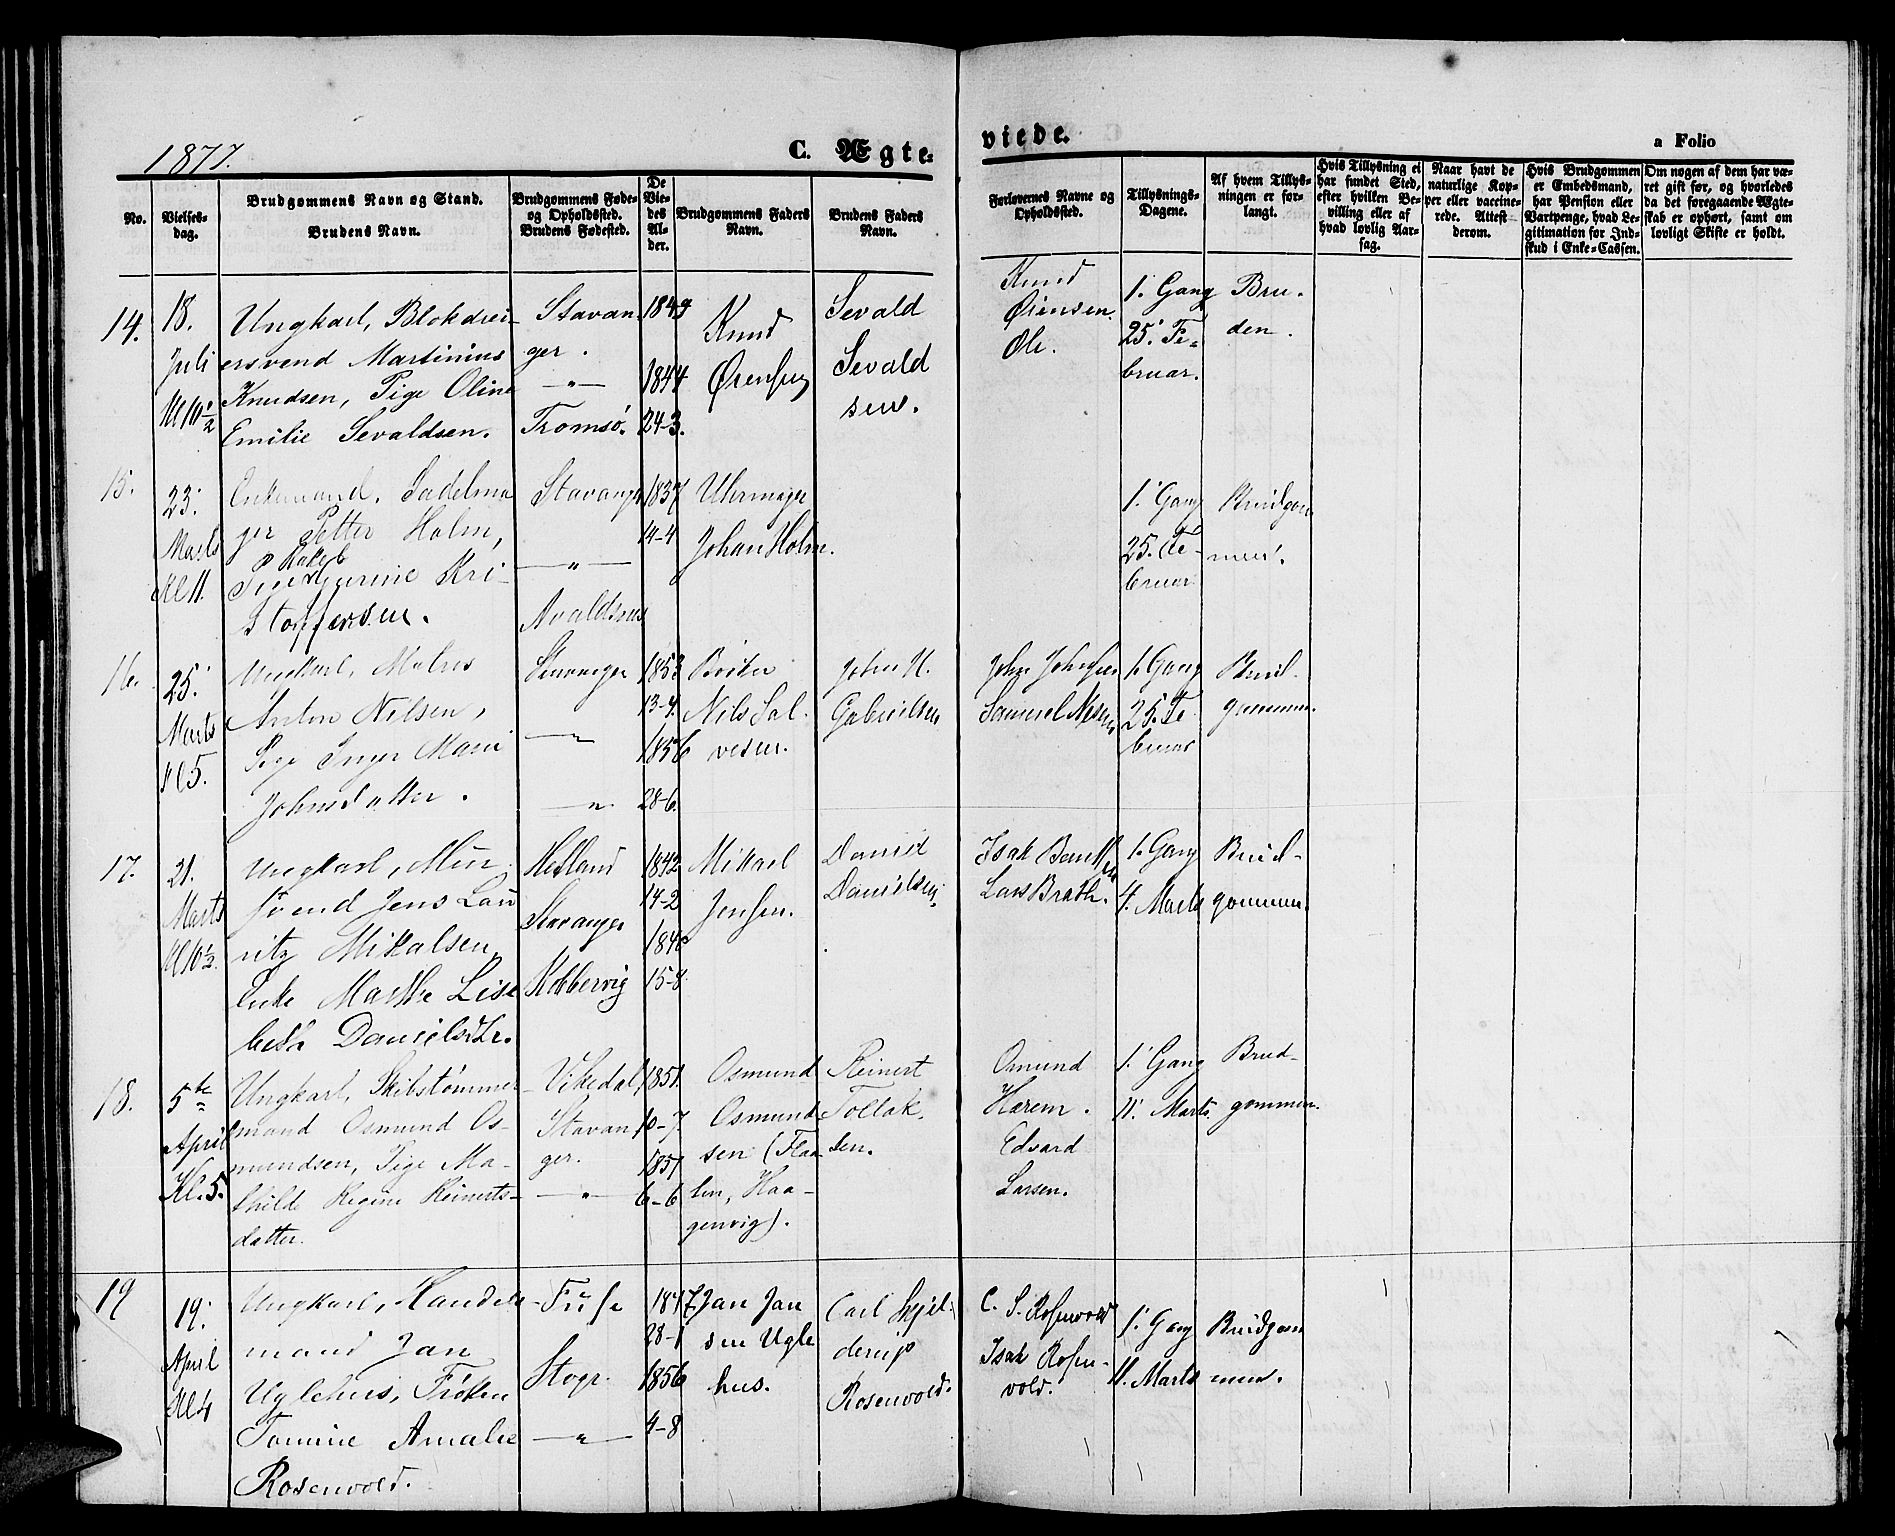 1877.
C. Ægte-
viede.
a Folio
No.
Vielses-
dag.
Brudgommens Navn og Stand.
Brudens Navn.
Brudgommens Føde-
og Opholdssted.
Brudens Fødested.
De
Vie-
des
Al-
der.
Brudgommens Faders
Navn.
Brudens Faders
Navn.
Forlovernes Navne og
Opholdssted.
Tillysnings-
Dagene.
Af hvem Tillys-
ningen er for-
langt.
Hvis Tillysning ei
har fundet Sted,
efter hvilken Be-
villing eller af
hvad lovlig Aar-
sag.
Naar havt de
naturlige Kop-
per eller vaccine-
rede. Attest
derom.
Hvis Brudgommen
er Embedsmand,
har Pension eller
Vartpenge, hvad Le-
gitimation for Ind-
skud i Enke-Cassen.
Om nogen af dem har væ-
ret gift før, og hvorledes
da det foregaaende Ægte-
skab er ophørt, samt om
lovligt Skifte er holdt.
14.
18.
Juli
Kl 10½
Ungkarl, Blokdrei-
ersvend Martinius
Knudsen, Pige Oline
Emilie Sevaldsen.
Stavan-
ger.
—"—
Tromsø.
1849
1844
24-3.
Knud
Ørensen
Sevald
Sevald
sen.
Knud
Ørensen.
Ole.
1' Gang
25' Fe-
bruar.
Bru-
den.
15.
23.
Marts
Kl 11.
Enkemand, Sadelma
ger Petter Holm,
Pige Gurine Kri-
stoffersen.
Stavanger
—"—
Avaldsnes
1837
14-4
Uhrmager
Johan Holm.
1' Gang
25. Fe-
bruar
Brudgom
men.
16.
25.
Marts
Kl 5.
Ungkarl, Matros
Anton Nilsen,
Pige Inger Marie
Johnsdatter.
Stavanger
—"—
—"—
1853
13-4.
1856
28-6.
Nils Sal-
vesen.
John H.
Gabrielsen
John Johnsen
1. Gang
25. Fe
bruar
Brud-
gommen.
17.
21.
Marts
Kl 10½
Ungkarl, Mur
svend Jens Lau
ritz Mikalsen,
Enke Marthe Lisa
beth Danielsdtr.
Hetland
Stavanger
Kobbervig
1842
14-2
1840
15-8
Mikael
Jensen.
Daniel
Danielsen.
Lars Brath.
1. Gang
4. Marts
Brud-
gommen.
18.
5te
April
Kl. 5.
Ungkarl, Skibstømmer-
mand Osmund Os-
mundsen, Pige Ma-
thilde Regine Reinerts-
datter.
Vikedal,
Stavan-
ger.
—"—
1851.
10-7
1851
6-6
Osmund
Osmund-
sen (Flaa-
ten, Haa-
genvig).
Reinert
Tollak-
sen.
Osmund
Harem.
Edvard
Larsen.
1' Gang
11. Marts.
Brud-
gommen.
19
19.
April
Kl 4
Ungkarl, Handels-
mand Jan
Uglehus, Frøken
Tomine Amalie
Rosenvold.
Fuse
Stvgr.
—"—
1847
28-1
1856
4-8
Jan Jan
sen Ugle
hus.
Carl Skjel-
derup
Rosenvold.
C. S. Rosenvold
Isak Rosen-
vold.
1' Gang
11. Marts
Brudgom
men.